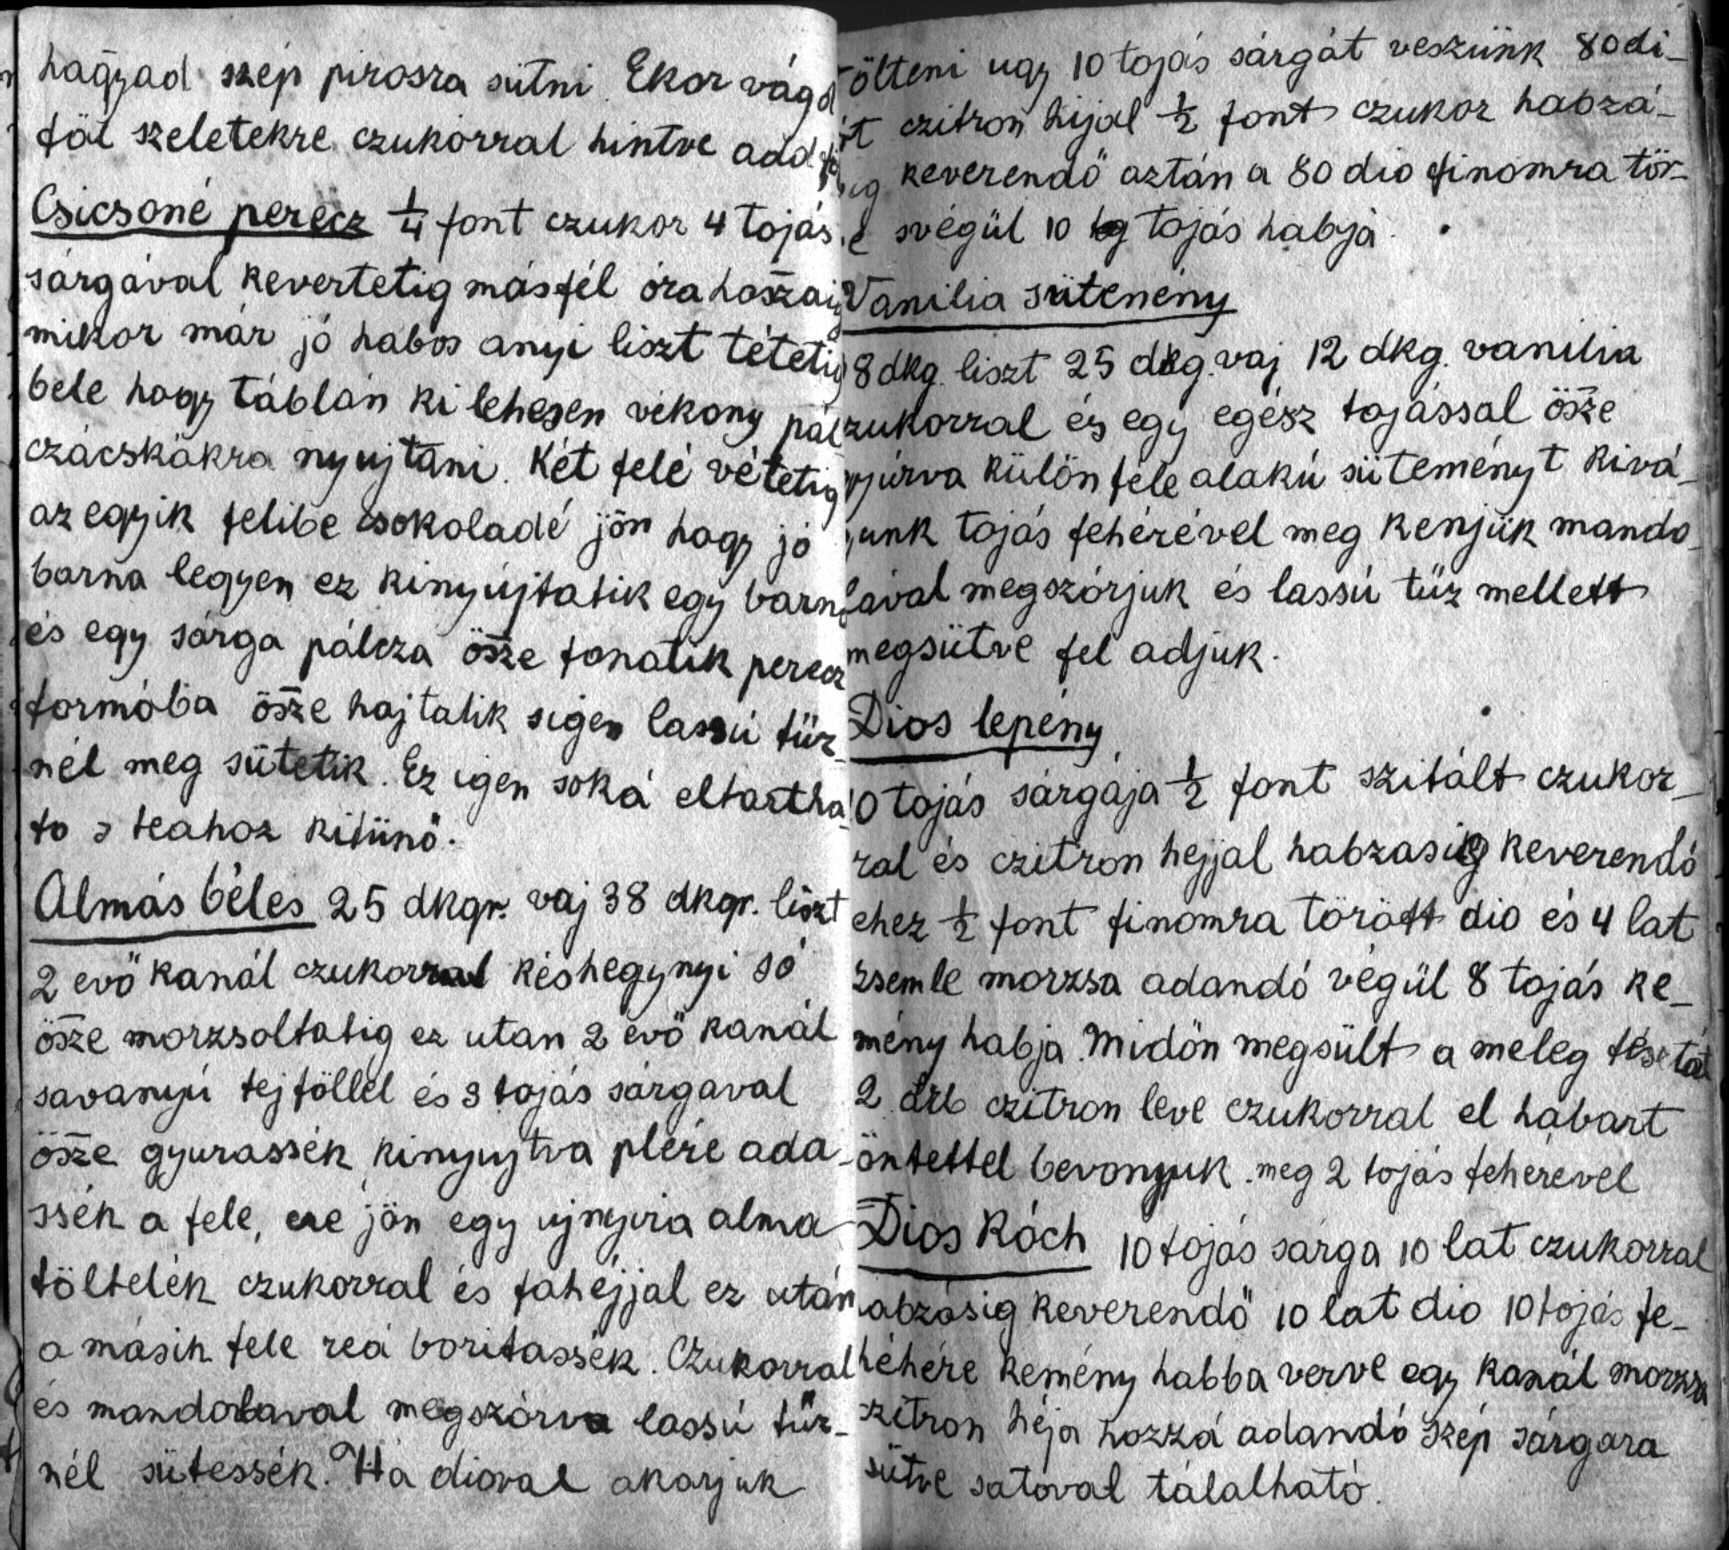 hagyad szép pirosra sütni. Ekor vágd
föl szeletekre czukorral hintve add
Csicsoné perecz 1/4 font czukor 4 tojás
sárgával kevertetig másfél óra hoszaig
mikor már jó habos anyi liszt tétetig
bele hogy táblán ki lehesen vékony pál
czácskákra nyujtani. Két felé vétetig
az egyik felibe csokoladé jön hogy jó
barna legyen ez kinyújtatik egy barna
és egy sárga pálcza ösze fonatik perecz
formába ösze hajtatik sigen lassú tüz-
nél meg sütetik. Ez igen soká eltartha-
to s teahoz kitünö.
Almás béles 25 dkgr. vaj 38 dkgr. liszt
2 evö kanál czukorral késhegynyi só
ösze morzsoltatig ez utan 2 evö kanál
savanyú tejföllel és 3 tojás sárgaval
ösze gyurassék kinyujtva plére ada-
ssék a fele, ere jön egy ujnyira alma
töltelék czukorral és fahéjjal ez után
a másik fele reá boritassék. Czukorral
és mandolaval megszórva lassú tüz-
nél sütessék. Ha dioval akarjuk
tölteni ugy 10 tojás sárgát veszünk 80 di-
ót czitron hijal 1/2 font czukor habzá-
ig keverendö aztán a 80 dio finomra tör-
e svégül 10 tojás habja.
Vanilia sütemény
8 dkg. liszt 25 dkg. vaj 12 dkg. vanilia
zukorral és egy egész tojással ösze
gyúrva külön féle alakú süteményt kivá-
gunk tojás fehérével meg kenjük mando-
lával megszórjuk és lassú tüz mellett
megsütve fel adjuk.
Dios lepény
10 tojás sárgája 1/2 font szitált czukor-
ral és czitron hejjal habzasig keverendó
ehez 1/2 font finomra törött dio és 4 lat
zsemle morzsa adandó végül 8 tojás ke-
mény habja. Midön megsült a meleg tésztát
2 drb czitron leve czukorral el habart
öntettel bevonyuk. meg 2 tojás fehérevel
Dios Kóch 10 tojás sárga 10 lat czukorral
abzásig keverendö 10 lat dio 10 tojás fe-
héhére kemény habba verve egy kanál morzsa
czitron héja hozzá adandó szép sárgara
sütve satoval tálalható.